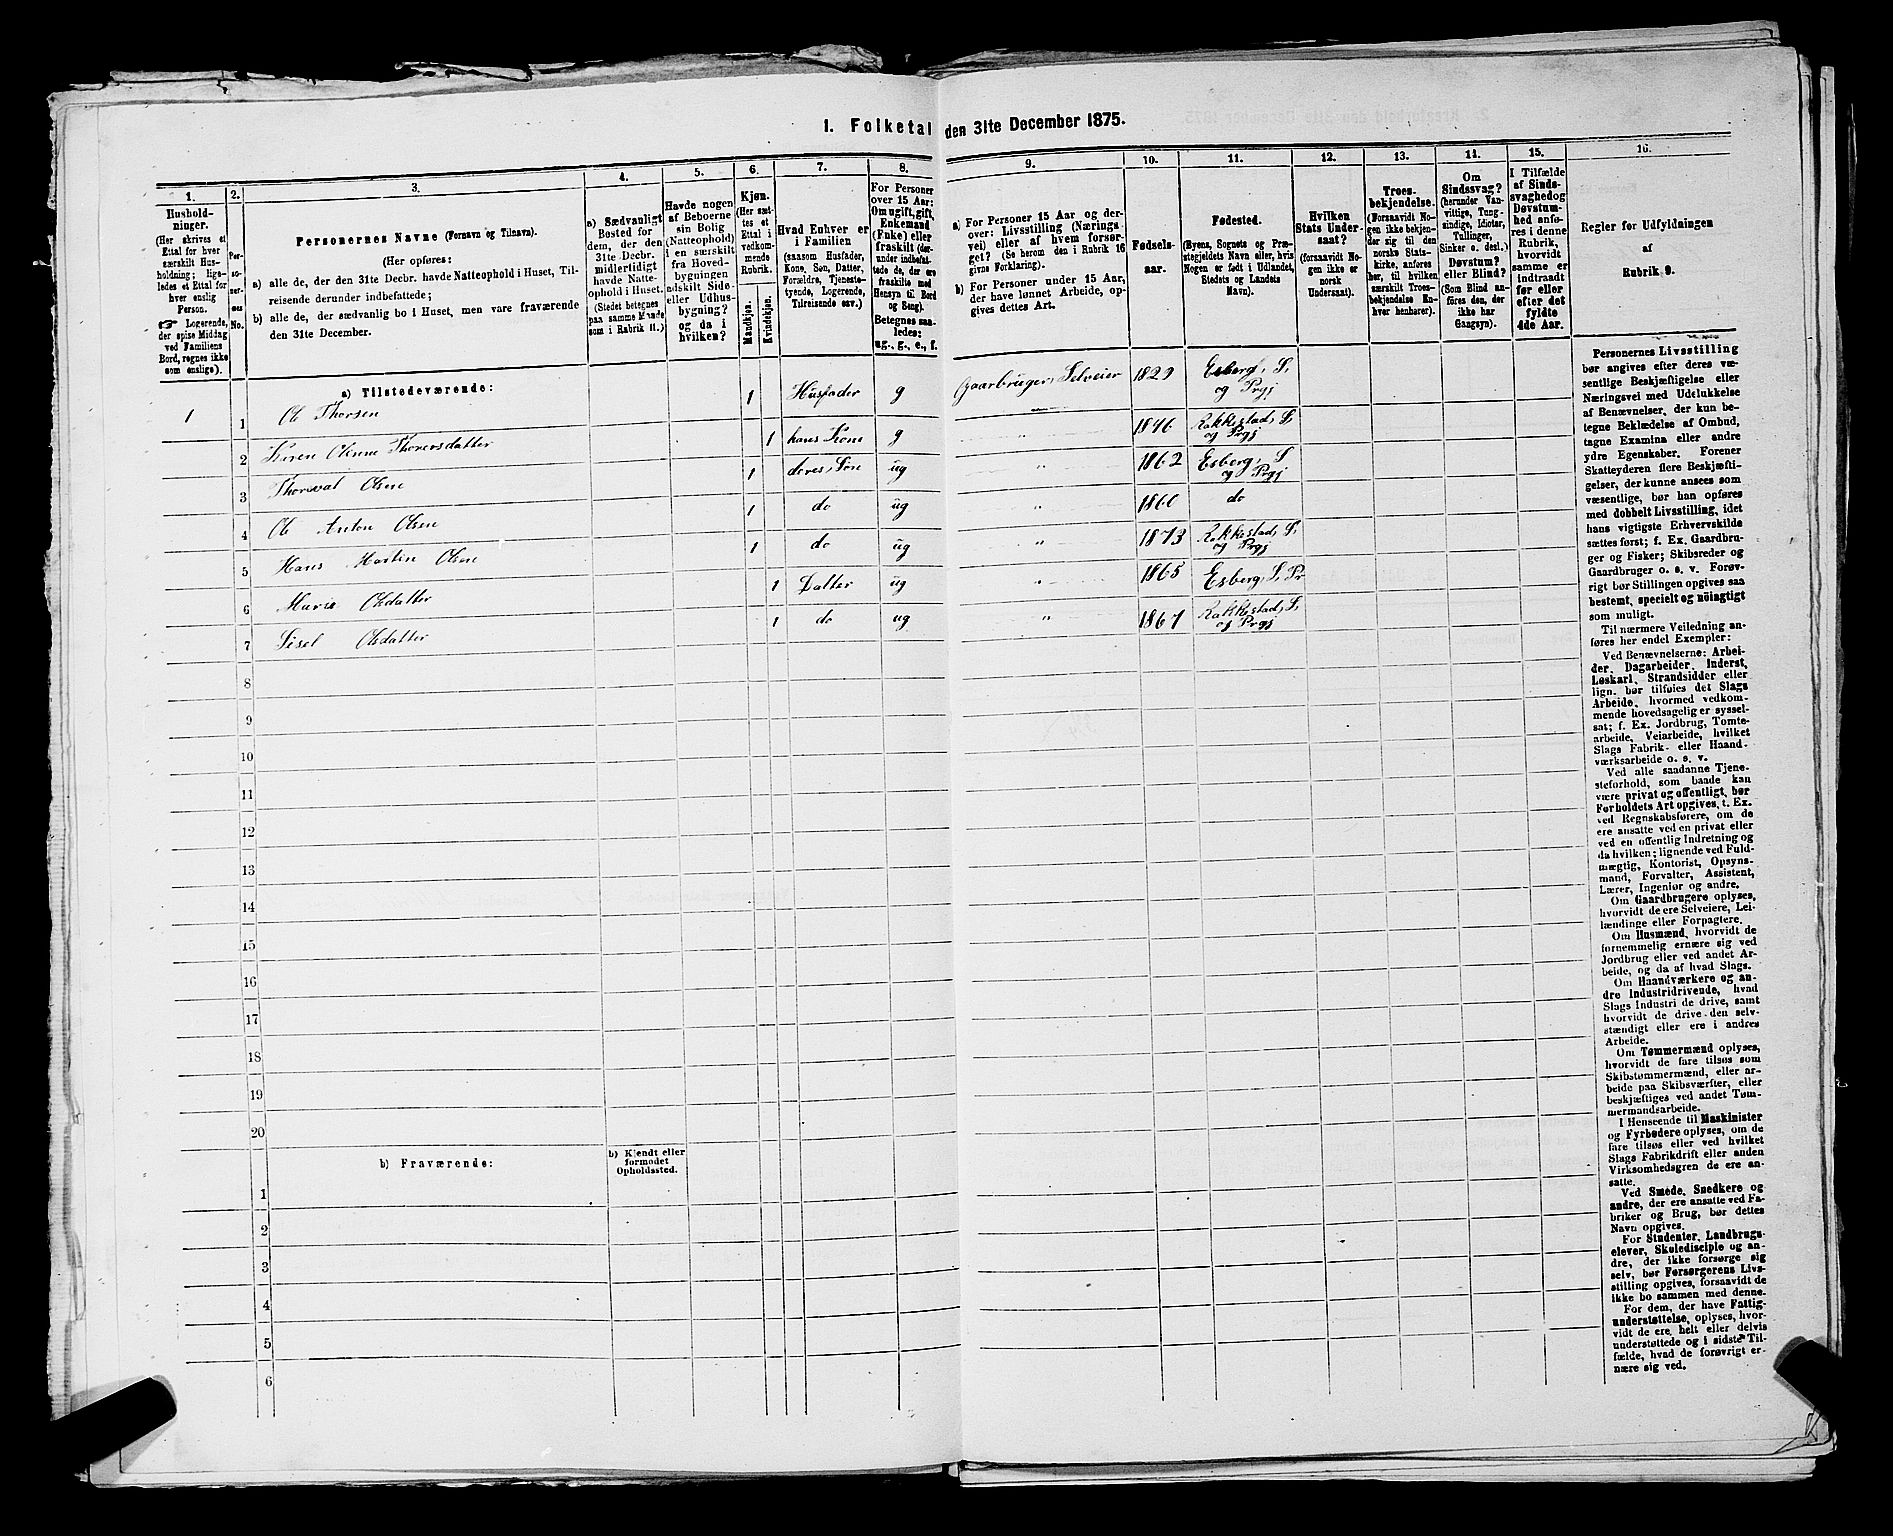 1. Folketal den 31te December 1875.
1.
Hushold-
ninger.
(Her skrives et
Ettal for hver
særskilt Hus-
holdning; lige-
ledes et Ettal for
hver enslig
Person.
☞ Logerende,
der spise Middag
ved Familiens
Bord, regnes ikke
som enslige).
2.
Per-
so-
ner-
nes
No.
3.
Personernes Navne (Fornavn og Tilnavn).
(Her opføres:
a) alle de, der den 31te Decbr. havde Natteophold i Huset, Til-
reisende derunder indbefattede;
b) alle de, der sædvanlig bo i Huset, men vare fraværende
den 31te December.
4.
a) Sædvanligt
Bosted for
dem, der den
31te Decbr.
midlertidigt
havde Natte-
ophold i Huset.
(Stedet betegnes
paa samme Maade
som i Rubrik 11.)
5.
Havde nogen
af Beboerne
sin Bolig
(Natteophold)
i en særskilt
fra Hoved-
bygningen
adskilt Side-
eller Udhus-
bygning?
og da i
hvilken?
6.
Kjøn.
(Her sæt-
tes et
Ettal i
vedkom-
mende
Rubrik.
Mandkjøn.
Kvindekjøn.
7.
Hvad Enhver er
i Familien
(saasom Husfader,
Kone, Søn, Datter,
Forældre, Tjeneste-
tyende, Logerende,
Tilreisende osv.)
8.
For Personer
over 15 Aar:
Om ugift, gift,
Enkemand
(Enke) eller
fraskilt (der-
under indbefat-
tede de, der ere
fraskilte med
Hensyn til Bord
og Seng).
Betegnes saa-
ledes:
ug., g., e., f.
9.
a) For Personer 15 Aar og der-
over: Livsstilling (Nærings-
vei) eller af hvem forsør-
get? (Se herom den i Rubrik 16
givne Forklaring).
b) For Personer under 15 Aar,
der have lønnet Arbeide, op-
gives dettes Art.
10.
Fødsels-
aar.
11.
Fødested.
(Byens, Sognets og Præ-
stegjeldets Navn eller, hvis
Nogen er født i Udlandet,
Stedets og Landets
Navn).
12.
Hvilken
Stats Under-
saat?
(forsaavidt No-
gen ikke er
norsk
Undersaat).
13.
Troes-
bekjendelse.
(Forsaavidt No-
gen ikke bekjen-
der sig til den
norske Stats-
kirke, anføres
her, til hvilken
særskilt Troes-
bekjendelse En-
hver henhører).
14.
Om
Sindssvag?
(herunder Van-
vittige, Tung-
sindige, Idioter,
Tullinger,
Sinker o. desl.)
Døvstum?
eller Blind?
(Som Blind an-
føres den, der
ikke har
Gangsyn).
15.
I Tilfælde
af Sinds-
svaghed og
Døvstum-
hed anfø-
res i denne
Rubrik,
hvorvidt
samme er
indtraadt
før eller
efter det
fyldte
4de Aar.
16.
Regler for Udfyldningen
af
Rubrik 9.
a) Tilstedeværende:
1 1 Ole Thorsen 1 Husfader g Gaarbruger, Selveier 1829 Esberg, S, og Prgj
2 Karen Oline Thoresdatter 1 hans Kone g " 1846 Rakkestad, S, og Prgj
3 Thorval Olsen 1 deres Søn ug " 1862 Esberg, S og Prgj
4 Ole Anton Olsen 1 do ug " 1860 do
5 Hans Martin Olsen 1 do ug " 1873 Rakkestad, S, og Prgj
6 Marie Olsdatter 1 Datter ug " 1865 Esberg, S, Pr
7 Sisel Olsdatter 1 do ug " 1867 Rakkestad, S, og Prgj
8
9
10
11
12
13
14
15
16
17
18
19
20
b) Fraværende:
b) Kjendt eller
formodet
Opholdssted.
1
2
3
4
5
6
Personernes Livsstilling
bør angives efter deres væ-
sentlige Beskjæftigelse eller
Næringsvei med Udelukkelse
af Benævnelser, der kun be-
tegne Beklædelse af Ombud,
tagne Examina eller andre
ydre Egenskaber. Forener
Skatteyderen flere Beskjæfti-
gelser, der kunne ansees som
væsentlige, bør han opføres
med dobbelt Livsstilling, idet
hans vigtigste Erhvervskilde
sættes først; f. Ex. Gaardbru-
ger og Fisker; Skibsreder og
Gaardbruger o. s. v. Forøv-
rigt bør Stillingen opgives saa
bestemt, specielt og nøiagtigt
som muligt.
Til nærmere Veiledning an-
føres her endel Exempler:
Ved Benævnelserne: Arbei-
der, Dagarbeider, Inderst,
Løskarl, Strandsidder eller
lign. bør tilføies det Slags
Arbeide, hvormed vedkom-
mende hovedsagelig er syssel-
sat; f. Ex. Jordbrug, Tomte-
arbeide, Veiarbeide, hvilket
Slags Fabrik- eller Haand-
værksarbeide o. s. v.
Ved alle saadanne Tjene-
steforhold, som baade kan
være privat og offentligt, bør
Forholdets Art opgives, t. Ex.
ved Regnskabsførere, om de
ere ansatte ved en privat eller
ved en offentlig Indretning og
da hvilken; lignende ved Fuld-
mægtig, Kontorist, Opsyns-
mand, Forvalter, Assistent,
Lærer, Ingeniør og andre.
Om Gaardbrugere oplyses,
hvorvidt de ere Selveiere, Lei-
lændinge eller Forpagtere.
Om Husmænd, hvorvidt de
fornemmelig ernære sig ved
Jordbrug eller ved andet Ar-
beide, og da af hvad Slags.
Om Haandværkere og an-
dre Industridrivende, hvad
Slags Industri de drive, samt
hvorvidt de drive den selv-
stændigt eller ere i andres
Arbeide.
Om Tømmermænd oplyses,
hvorvidt de fare tilsøs som
Skibstømmermænd, eller ar-
beide paa Skibsværfter, eller
beskjæftiges ved andet Tøm-
mermandsarbeide.
I Henseende til Maskinister
og Fyrbødere oplyses, om de
fare tilsøs eller ved hvilket
Slags Fabrikdrift eller anden
Virksomhedsgren de ere an-
satte.
Ved Smede, Snedkere og
andre, der ere ansatte ved Fa-
briker og Brug, bør dettes
Navn opgives.
For Studenter, Landbrugs-
elever, Skoledisciple og an-
dre, der ikke forsørge sig
selv, bør Forsørgerens Livs-
stilling opgives, forsaavidt de
ikke bo sammen med denne.
For dem, der have Fattig-
understøttelse, oplyses, hvor-
vidt de ere helt eller delvis
understøttede og i sidste Til-
fælde, hvad de forøvrigt er-
nære sig ved.